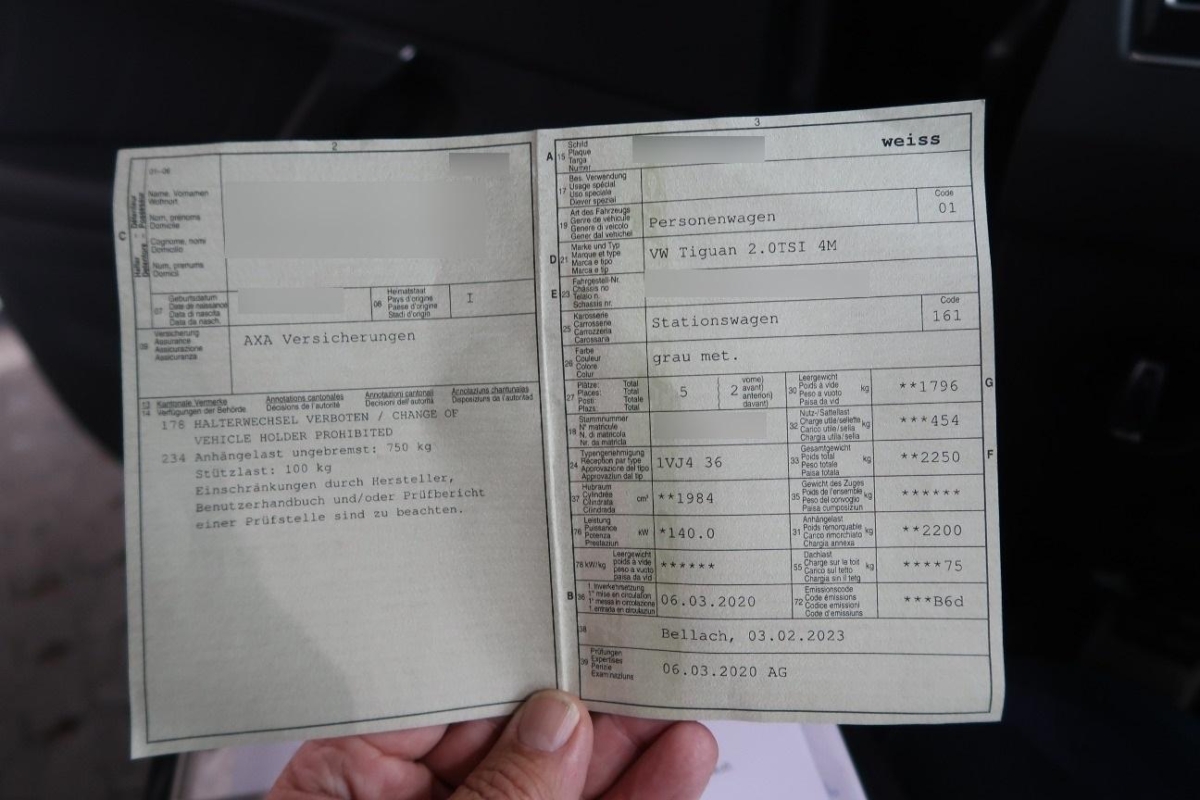 2
01-06
Name, Vornamen
Wohnort
Nom, prénoms
Domicile
Cognome, nomi
Domicilio
Num, prenums
Domicil
C
07
Geburtsdatum
Date de naissance
Data di nascita
Data da nasch.
08
Heimatstaat
Pays d'origine
Paese d'origine
Stadi d'origin
I
09
Versicherung
Assurance
Assicurazione
Assicuranza
AXA Versicherungen
13
14
Kantonale Vermerke
Verfügungen der Behörde
Annotations cantonales
Décisions de l'autorité
Annotazioni cantonali
Decisioni dell'autorità
Annotaziuns chantunalas
Disposiziuns da l'autoritad
178 HALTERWECHSEL VERBOTEN / CHANGE OF
VEHICLE HOLDER PROHIBITED
234 Anhängelast ungebremst: 750 kg
Stützlast: 100 kg
Einschränkungen durch Hersteller,
Benutzerhandbuch und/oder Prüfbericht
einer Prüfstelle sind zu beachten.
3
A 15
Schild
Plaque
Targa
Numer
weiss
17
Bes. Verwendung
Usage spécial
Uso speciale
Diever spezial
19
Art des Fahrzeugs
Genre de véhicule
Genere di veicolo
Gener dal vehichel
Personenwagen
Code
01
D 21
Marke und Typ
Marque et type
Marca e tipo
Marca e tip
VW Tiguan 2.0TSI 4M
E 23
Fahrgestell-Nr.
Châssis no
Telaio n.
Schassis nr.
25
Karosserie
Carrosserie
Carrozzeria
Carossaria
Stationswagen
Code
161
26
Farbe
Couleur
Colore
Colur
grau met.
27
Plätze: Total
Places: Total
Posti: Totale
Plazs: Total
5
2
vorne)
avant)
anteriori)
davant)
30
Leergewicht
Poids à vide
Peso a vuoto
Paisa da vid
kg
**1796
G
18
Stammnummer
N° matricule
N. di matricola
Nr. da matricla
32
Nutz-/Sattellast
Charge utile/sellette
Carico utile/sella
Chargia utila/sella
kg
***454
24
Typengenehmigung
Réception par type
Approvazione del tipo
Approvaziun dal tip
1VJ4 36
33
Gesamtgewicht
Poids total
Peso totale
Paisa totala
kg
**2250
F
37
Hubraum
Cylindrée
Cilindrata
Cilindrada
cm³
**1984
35
Gewicht des Zuges
Poids de l'ensemble
Peso del convoglio
Paisa cumposiziun
kg
******
76
Leistung
Puissance
Potenza
Prestaziun
kW
*140.0
31
Anhängelast
Poids remorquable
Carico rimorchiato
Chargia annexa
kg
**2200
78 kW/kg
Leergewicht
poids à vide
peso a vuoto
paisa da vid
******
55
Dachlast
Charge sur le toit
Carico sul tetto
Chargia sin il tetg
kg
****75
B 36
1. Inverkehrsetzung
1re mise en circulation
1a messa in circolazione
1. entrada en circulaziun
06.03.2020
72
Emissionscode
Code émissions
Codice emissioni
Code d'emissiuns
***B6d
38
Bellach, 03.02.2023
39
Prüfungen
Expertises
Perizie
Examinaziuns
06.03.2020 AG